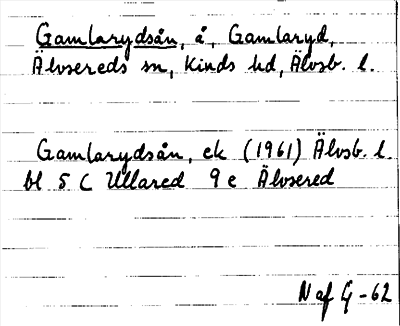 Gamlarydsån, å, Gamlaryd,
Älvsereds sn, Kinds hd, Älvsb. l.
Gamlarydsån, ek (1961) Älvsb. l.
bl 5 C Ullared 9 e Älvsered
N af G -62